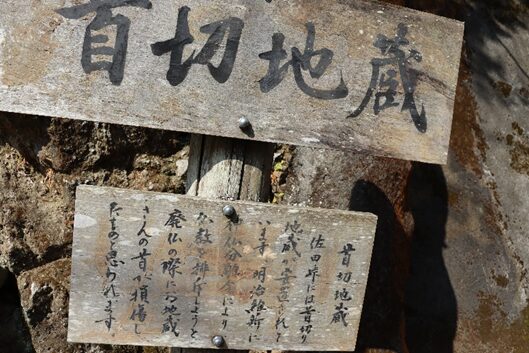 首切地蔵
首切地蔵
佐田峠には首切り
地蔵が安置されて
います 明治維新に
神仏分離令により
仏教を排斥しようと
廃仏の際にお地蔵
さんの首が損傷し
たものと思われます。